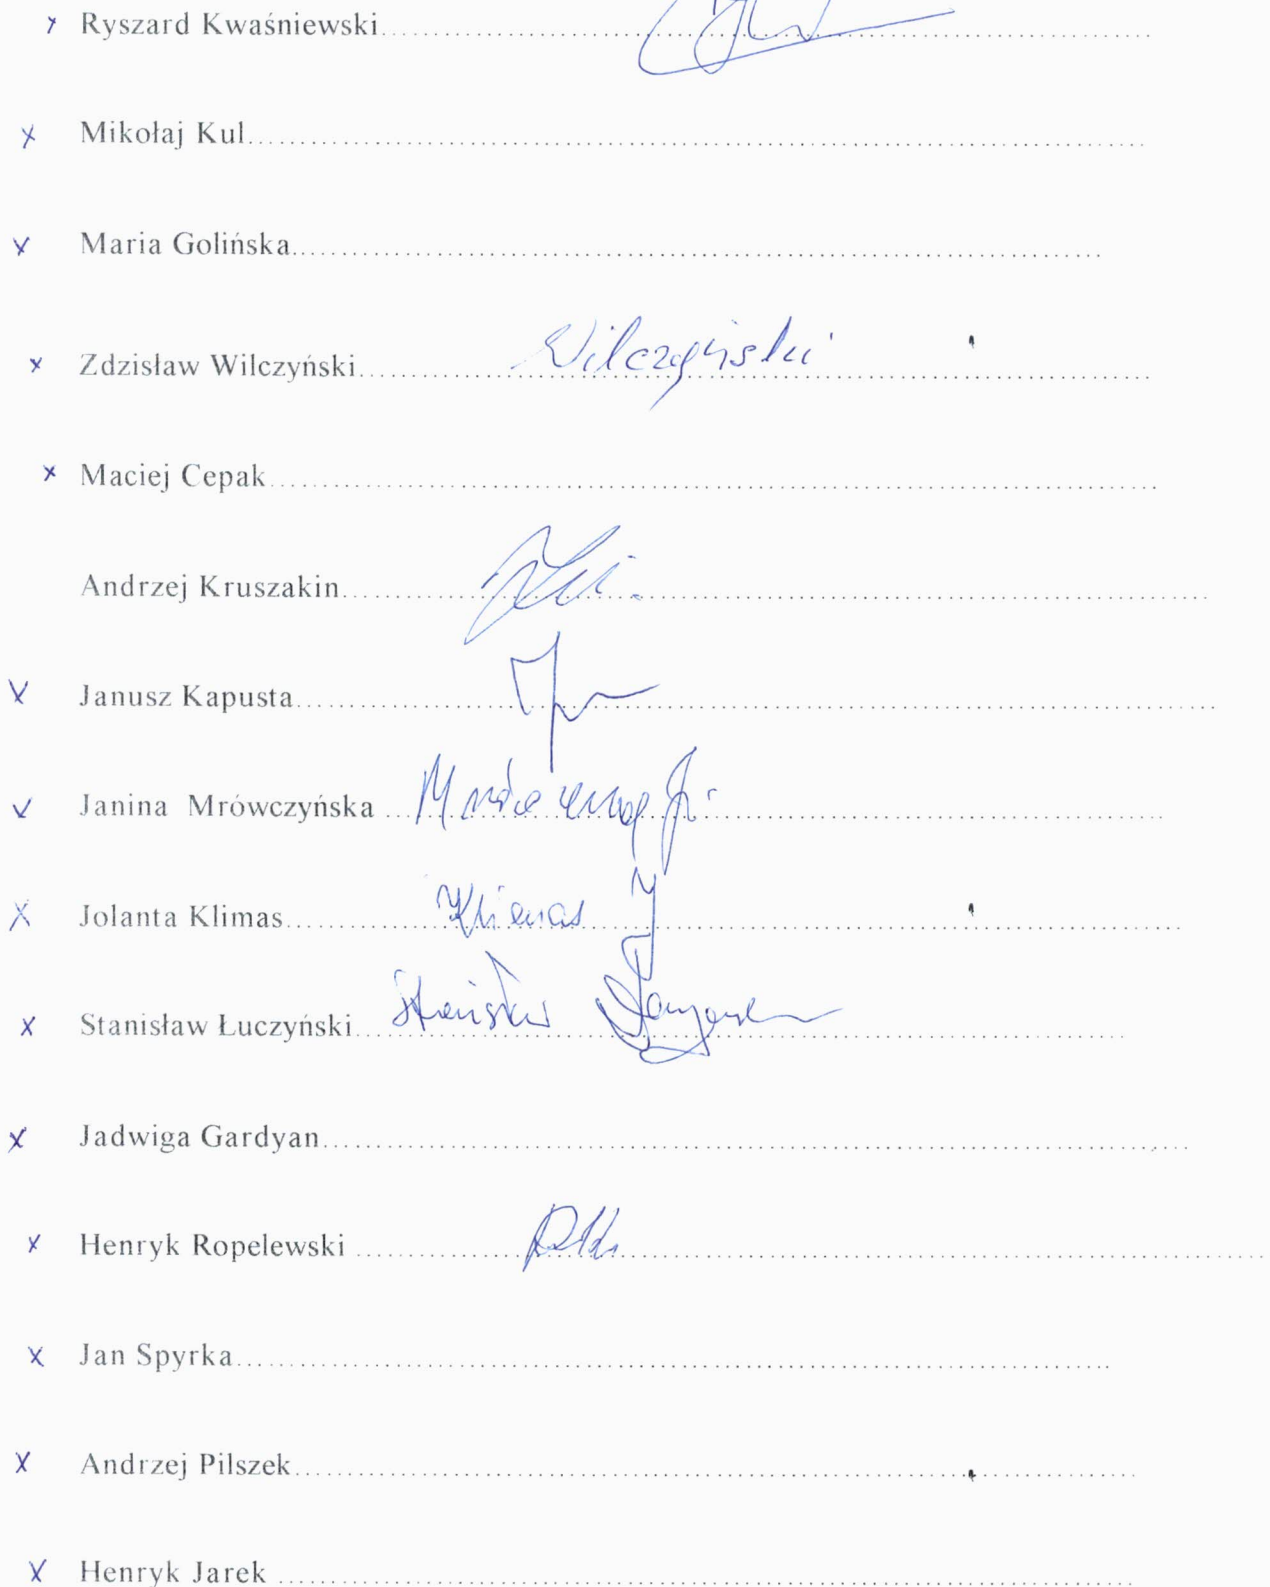 Ryszard Kwaśniewski
Mikołaj Kul
Maria Golińska
Zdzisław Wilczyński Wilczyński
Maciej Cepak
Andrzej Kruszakin
Janusz Kapusta
Janina Mrówczyńska
Jolanta Klimas Klimas J
Stanisław Łuczyński Stanisław
Jadwiga Gardyan
Henryk Ropelewski
Jan Spyrka
Andrzej Pilszek
Henryk Jarek